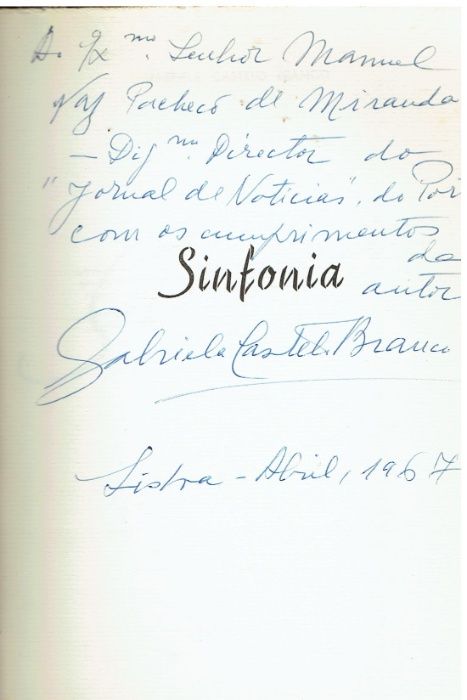 Ao Exmo. Senhor Manuel
Vaz Pacheco de Miranda
— Digmo. Director do
"Jornal de Notícias", do Por
com os cumprimentos
da
Sinfonia
autor
Gabriela Castelo Branco
Lisboa - Abril, 1967